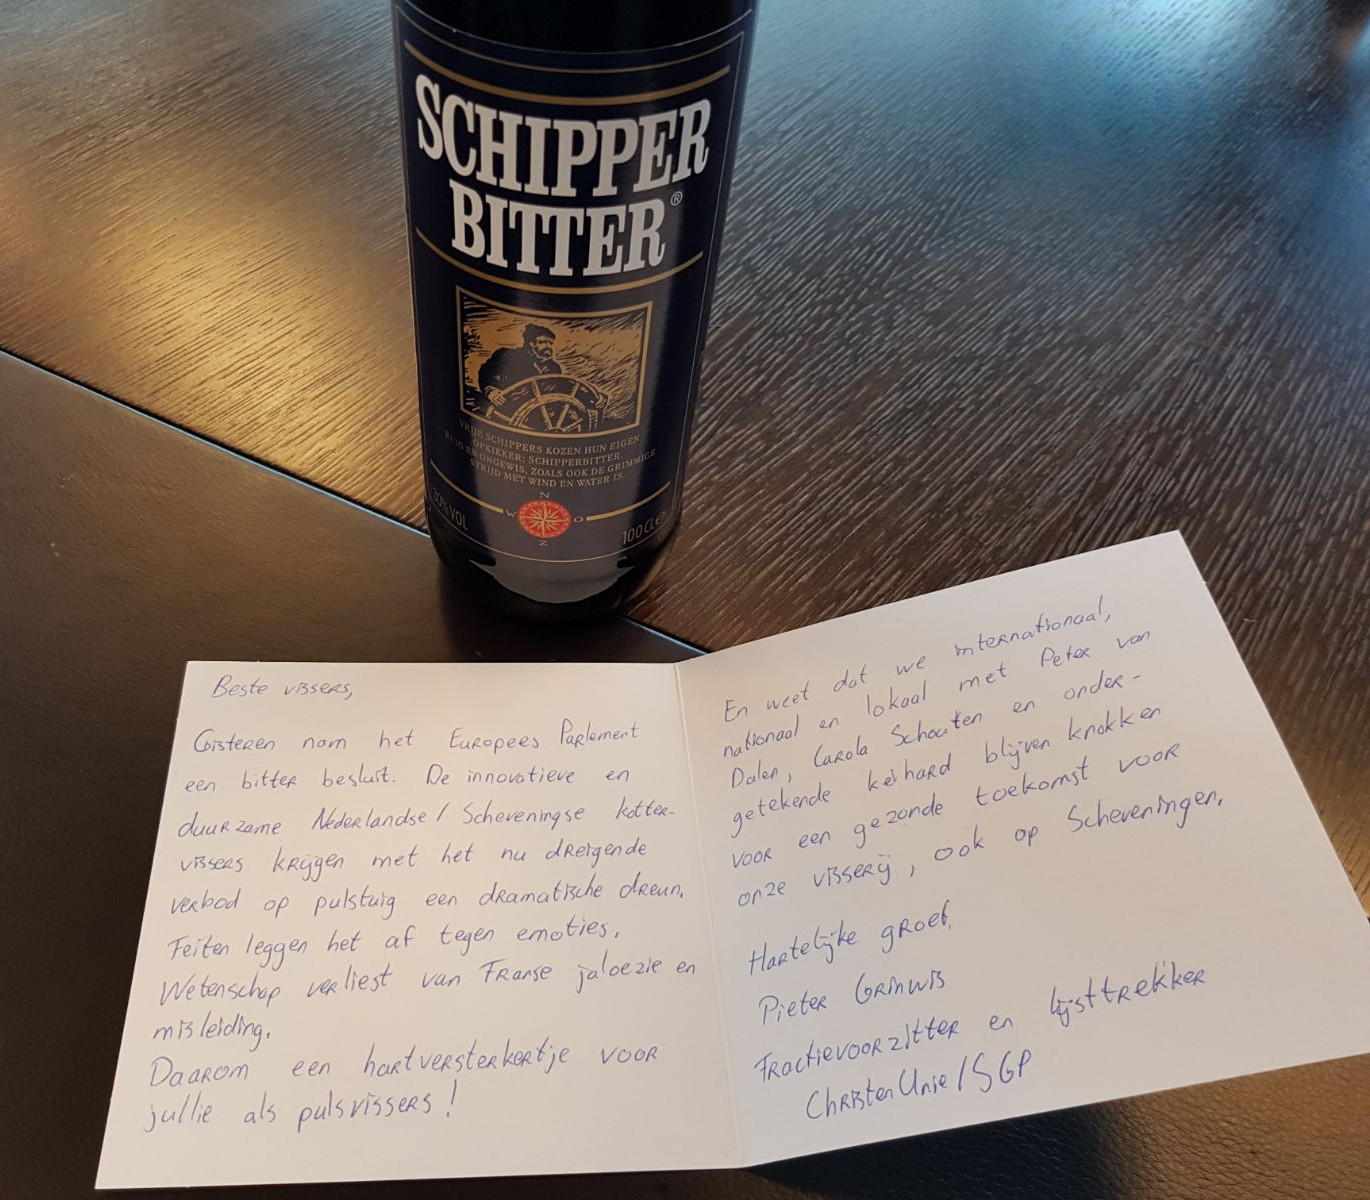 SCHIPPER
BITTER®
VRIJE SCHIPPERS KOZEN HUN EIGEN
OPKIKKER; SCHIPPERBITTER.
RUIG EN ONGEWIS, ZOALS OOK DE GRIMMIGE
STRIJD MET WIND EN WATER IS.
N
W O
Z
30% VOL
100 CL e
Beste vissers,
Gisteren nam het Europees Parlement
een bitter besluit. De innovatieve en
duurzame Nederlandse/Scheveningse kotter-
vissers krijgen met het nu dreigende
verbod op pulstuig een dramatische dreun.
Feiten leggen het af tegen emoties.
Wetenschap verliest van Franse jaloezie en
misleiding.
Daarom een hartversterkertje voor
jullie als pulsvissers!
En weet dat we internationaal,
nationaal en lokaal met Peter van
Dalen, Carola Schouten en onder-
getekende keihard blijven knokken
voor een gezonde toekomst voor
onze visserij, ook op Scheveningen.
Hartelijke groet,
Pieter Grinwis
Fractievoorzitter en lijsttrekker
ChristenUnie/SGP